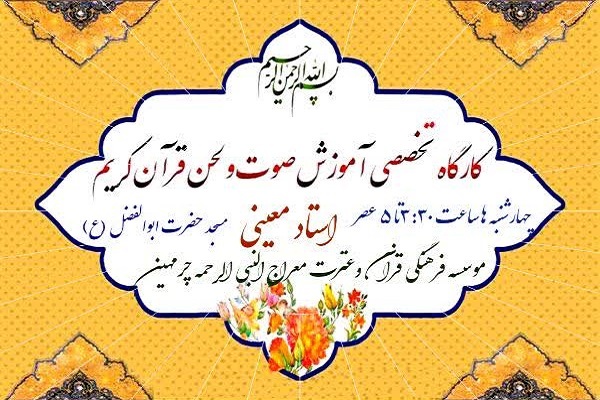 بسم الله الرحمن الرحیم
کارگاه تخصصی آموزش صوت و لحن قرآن کریم
چهارشنبه ها ساعت ۳:۳۰ تا ۵ عصر استاد معینی مسجد حضرت ابوالفضل (ع)
موسسه فرهنگی قرآن و عترت معراج النبی الرحمه چرمهین